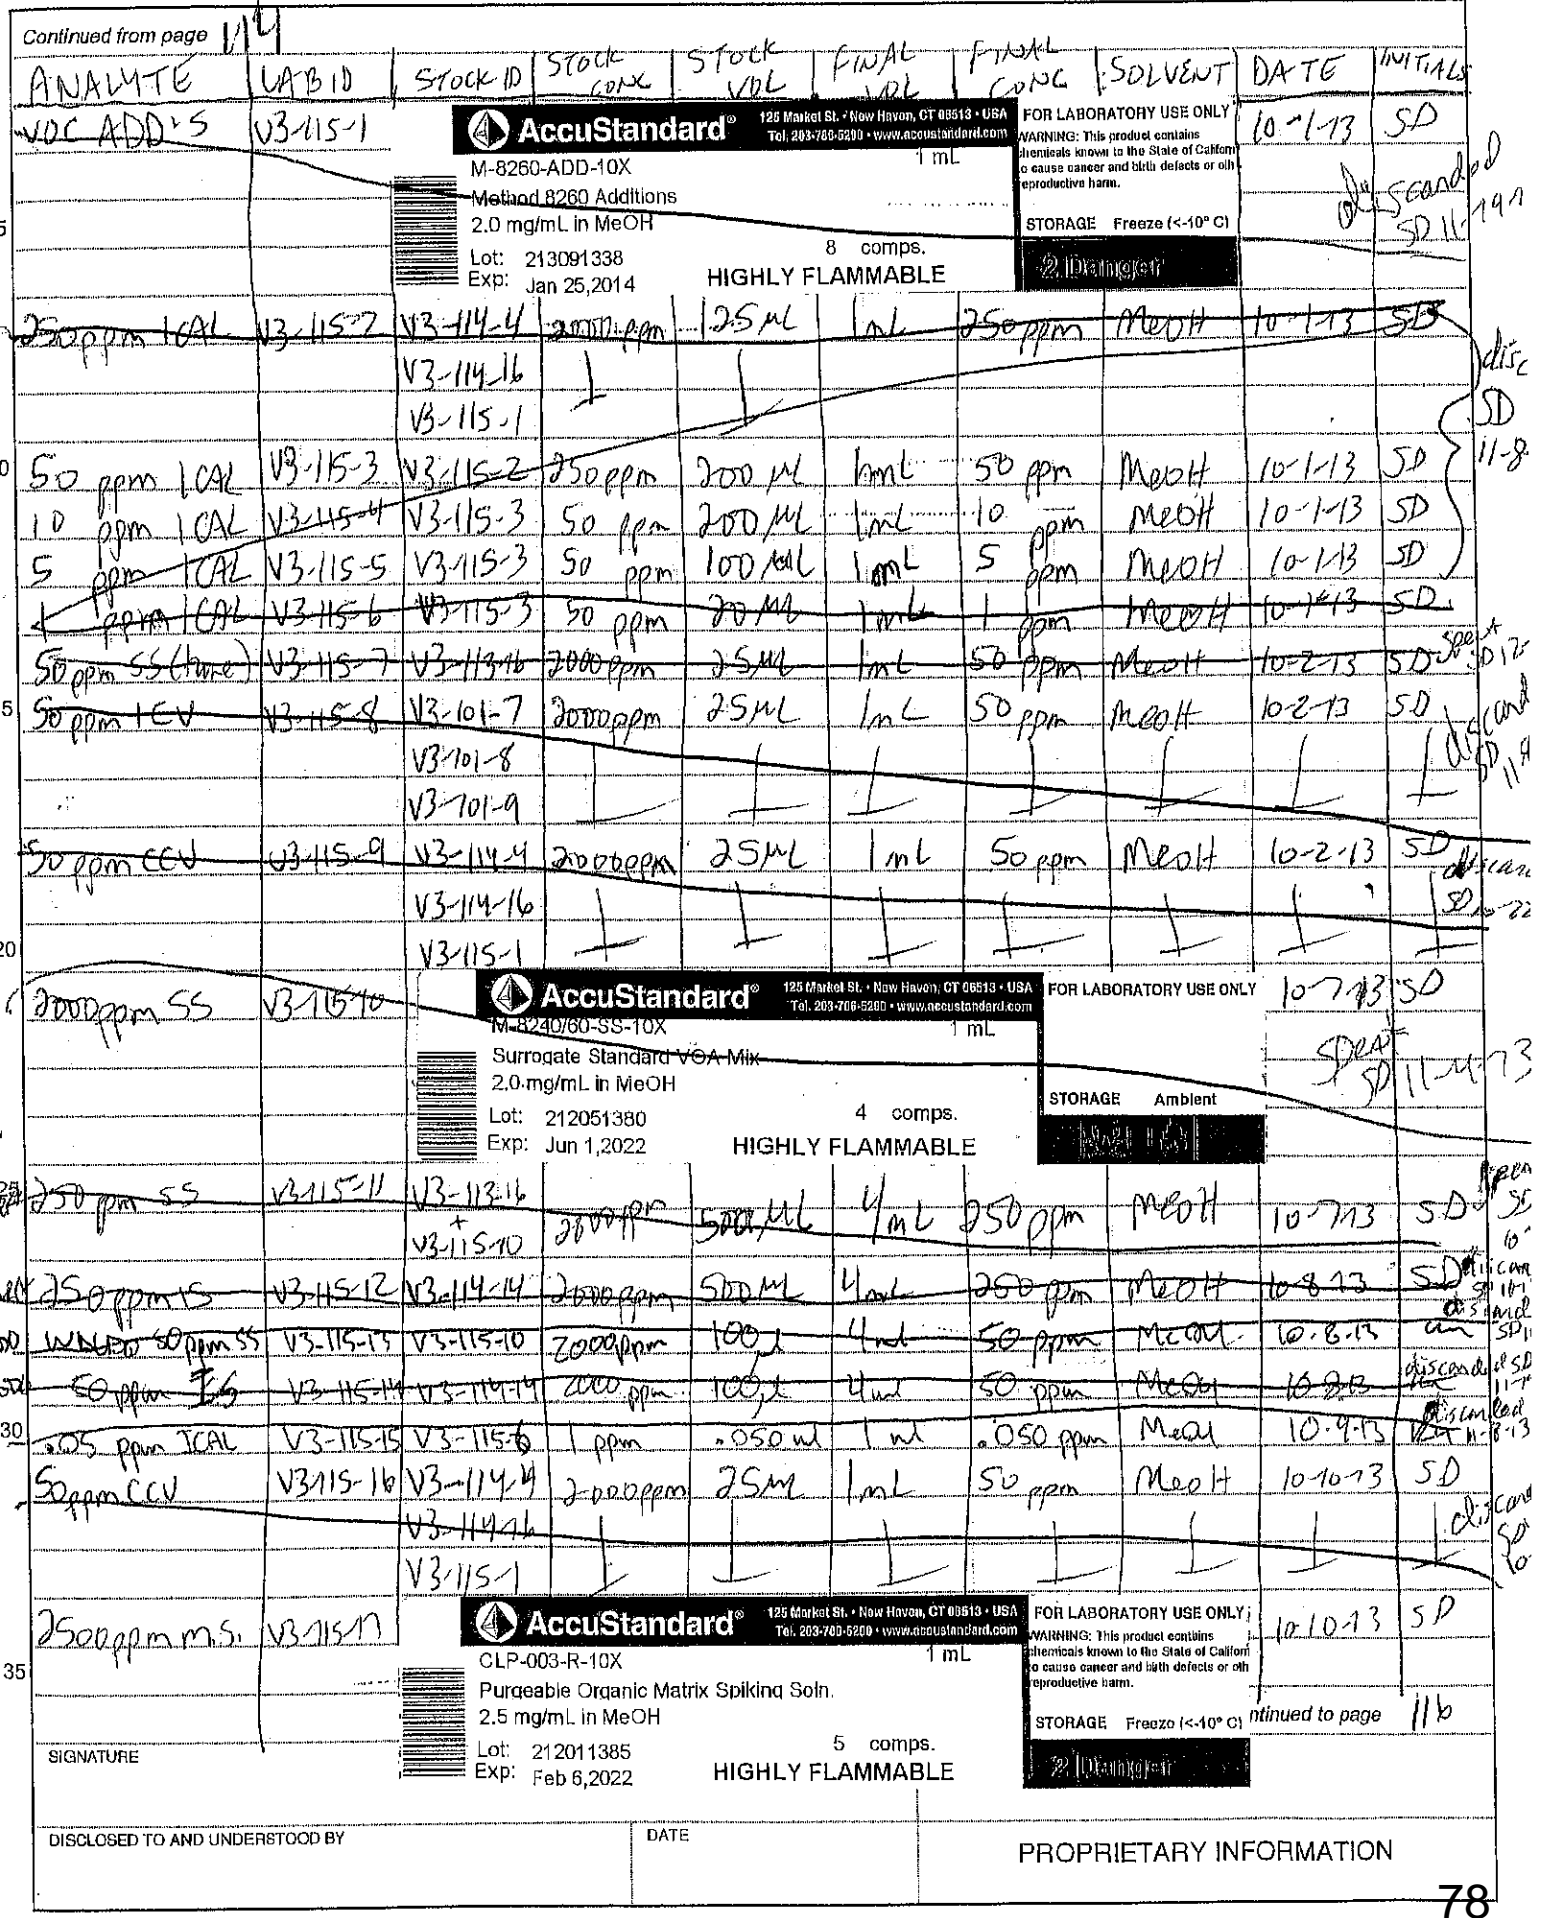 Continued from page 114
ANALYTE LAB ID STOCK ID STOCK CONC STOCK VOL FINAL VOL FINAL CONC SOLVENT DATE INITIALS
VOC ADD'S V3-115-1 10-1-13 SD
AccuStandard® 125 Market St. • New Haven, CT 06513 • USA
Tel. 203-786-5290 • www.accustandard.com
M-8260-ADD-10X 1 mL
Method 8260 Additions
2.0 mg/mL in MeOH
8 comps.
Lot: 213091338
Exp: Jan 25,2014
HIGHLY FLAMMABLE
FOR LABORATORY USE ONLY
WARNING: This product contains
chemicals known to the State of Californ
o cause cancer and birth defects or oth
eproductive harm.
STORAGE Freeze (<-10° C)
2 Danger
discarded
SD 11-
250 ppm ICAL V3-115-2 V3-114-4 2000 ppm 125 µL 1 mL 250 ppm MeOH 10-1-13 SD
V3-114-16
V3-115-1
disc
SD
11-8
50 ppm ICAL V3-115-3 V3-115-2 250 ppm 200 µL 1 mL 50 ppm MeOH 10-1-13 SD
10 ppm ICAL V3-115-4 V3-115-3 50 ppm 200 µL 1 mL 10 ppm MeOH 10-1-13 SD
5 ppm ICAL V3-115-5 V3-115-3 50 ppm 100 µL 1 mL 5 ppm MeOH 10-1-13 SD
1 ppm ICAL V3-115-6 V3-115-3 50 ppm 20 µL 1 mL 1 ppm MeOH 10-1-13 SD
50 ppm SS (tune) V3-115-7 V3-113-16 2000 ppm 25 µL 1 mL 50 ppm MeOH 10-2-13 SD spent
50 ppm ICV V3-115-8 V3-101-7 2000 ppm 25 µL 1 mL 50 ppm MeOH 10-2-13 SD discard
V3-101-8
V3-101-9
50 ppm CCV V3-115-9 V3-114-4 2000 ppm 25 µL 1 mL 50 ppm MeOH 10-2-13 SD
V3-114-16
V3-115-1
2000 ppm SS V3-115-10 10-7-13 SD
AccuStandard® 125 Market St. • New Haven, CT 06513 • USA
Tel. 203-786-5290 • www.accustandard.com
M-8240/60-SS-10X 1 mL
Surrogate Standard VOA Mix
2.0 mg/mL in MeOH
4 comps.
Lot: 212051380
Exp: Jun 1,2022
HIGHLY FLAMMABLE
FOR LABORATORY USE ONLY
STORAGE Ambient
spent
SD 11-4-13
250 ppm SS V3-115-11 V3-113-16 2000 ppm 500 µL 4 mL 250 ppm MeOH 10-7-13 SD
+
V3-115-10
250 ppm IS V3-115-12 V3-114-14 2000 ppm 500 µL 4 mL 250 ppm MeOH 10-8-13 SD
50 ppm SS V3-115-13 V3-115-10 2000 ppm 100 µl 4 ml 50 ppm MeOH 10-8-13
50 ppm IS V3-115-14 V3-114-14 2000 ppm 100 µl 4 ml 50 ppm MeOH 10-8-13 discarded SD
.05 ppm ICAL V3-115-15 V3-115-6 1 ppm .050 ml 1 ml .050 ppm MeOH 10-9-13 discarded
50 ppm CCV V3-115-16 V3-114-4 2000 ppm 25 µL 1 mL 50 ppm MeOH 10-10-13 SD
V3-114-16
V3-115-1
2500 ppm m.s. V3-115-17 10-10-13 SD
AccuStandard® 125 Market St. • New Haven, CT 06513 • USA
Tel. 203-786-5290 • www.accustandard.com
CLP-003-R-10X 1 mL
Purgeable Organic Matrix Spiking Soln.
2.5 mg/mL in MeOH
5 comps.
Lot: 212011385
Exp: Feb 6,2022
HIGHLY FLAMMABLE
FOR LABORATORY USE ONLY
WARNING: This product contains
chemicals known to the State of Californ
o cause cancer and birth defects or oth
eproductive harm.
STORAGE Freeze (<-10° C)
2 Danger
ntinued to page 116
SIGNATURE
DISCLOSED TO AND UNDERSTOOD BY DATE PROPRIETARY INFORMATION
78